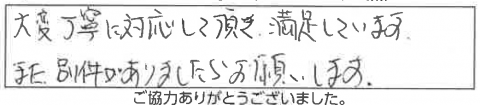 大変丁寧に対応して頂き、満足しています。
また、別件がありましたらお願いします。
ご協力ありがとうございました。